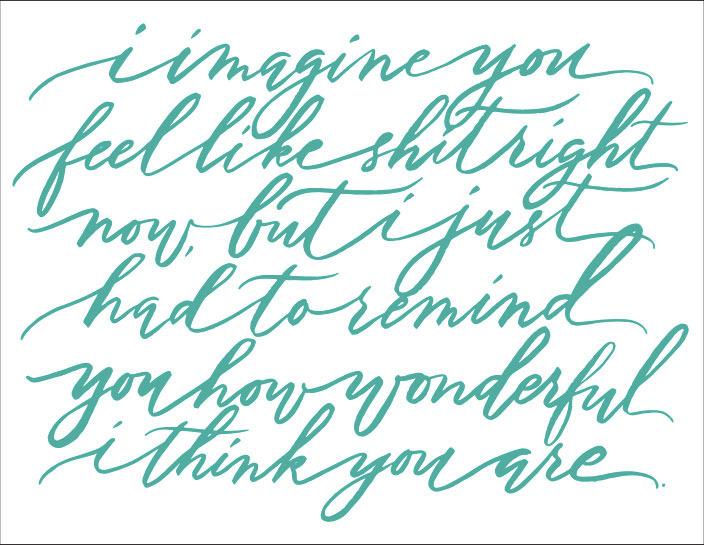 i imagine you
feel like shit right
now, but i just
had to remind
you how wonderful
i think you are.